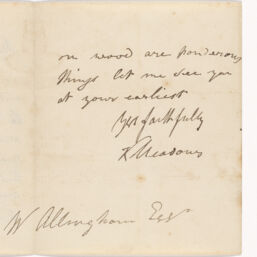 on wood are ponderous
things let me see you
at your earliest
Yrs faithfully
K Meadows
W Allingham Esqr